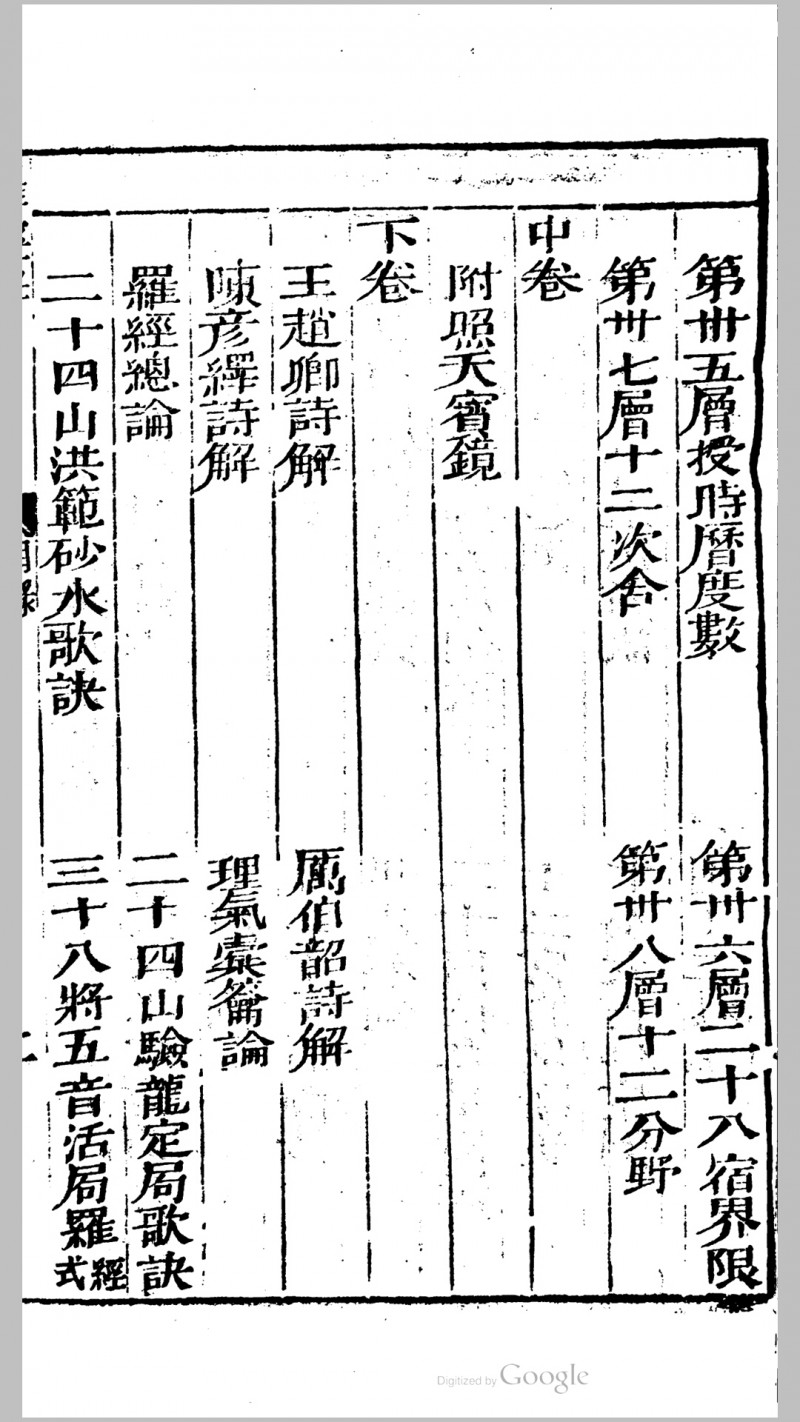 第卅五層授時曆度數　第卅六層二十八宿界限
第卅七層十二次舍　第卅八層十二分野
中卷
附照天寶鏡
下卷
王趙卿詩解　厲伯韶詩解
陳彥繹詩解　理氣橐籥論
羅經總論　二十四山驗龍定局歌訣
二十四山洪範砂水歌訣　三十八將五音活局羅經式
目錄
二
Digitized by Google